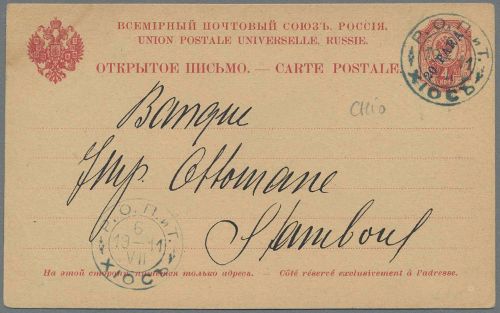 ВСЕМІРНЫЙ ПОЧТОВЫЙ СОЮЗЪ, РОССІЯ.
UNION POSTALE UNIVERSELLE, RUSSIE.
ОТКРЫТОЕ ПИСЬМО. — CARTE POSTALE
Р. О. П. и Т.
20 PARA
ХІОСЪ
Chio
Banque
Imp. Ottomane
Stamboul
Р. О. П. и Т.
6
19-11
VII
ХІОСЪ
На этой сторонѣ пишется только адресъ. — Côté réservé exclusivement à l'adresse.